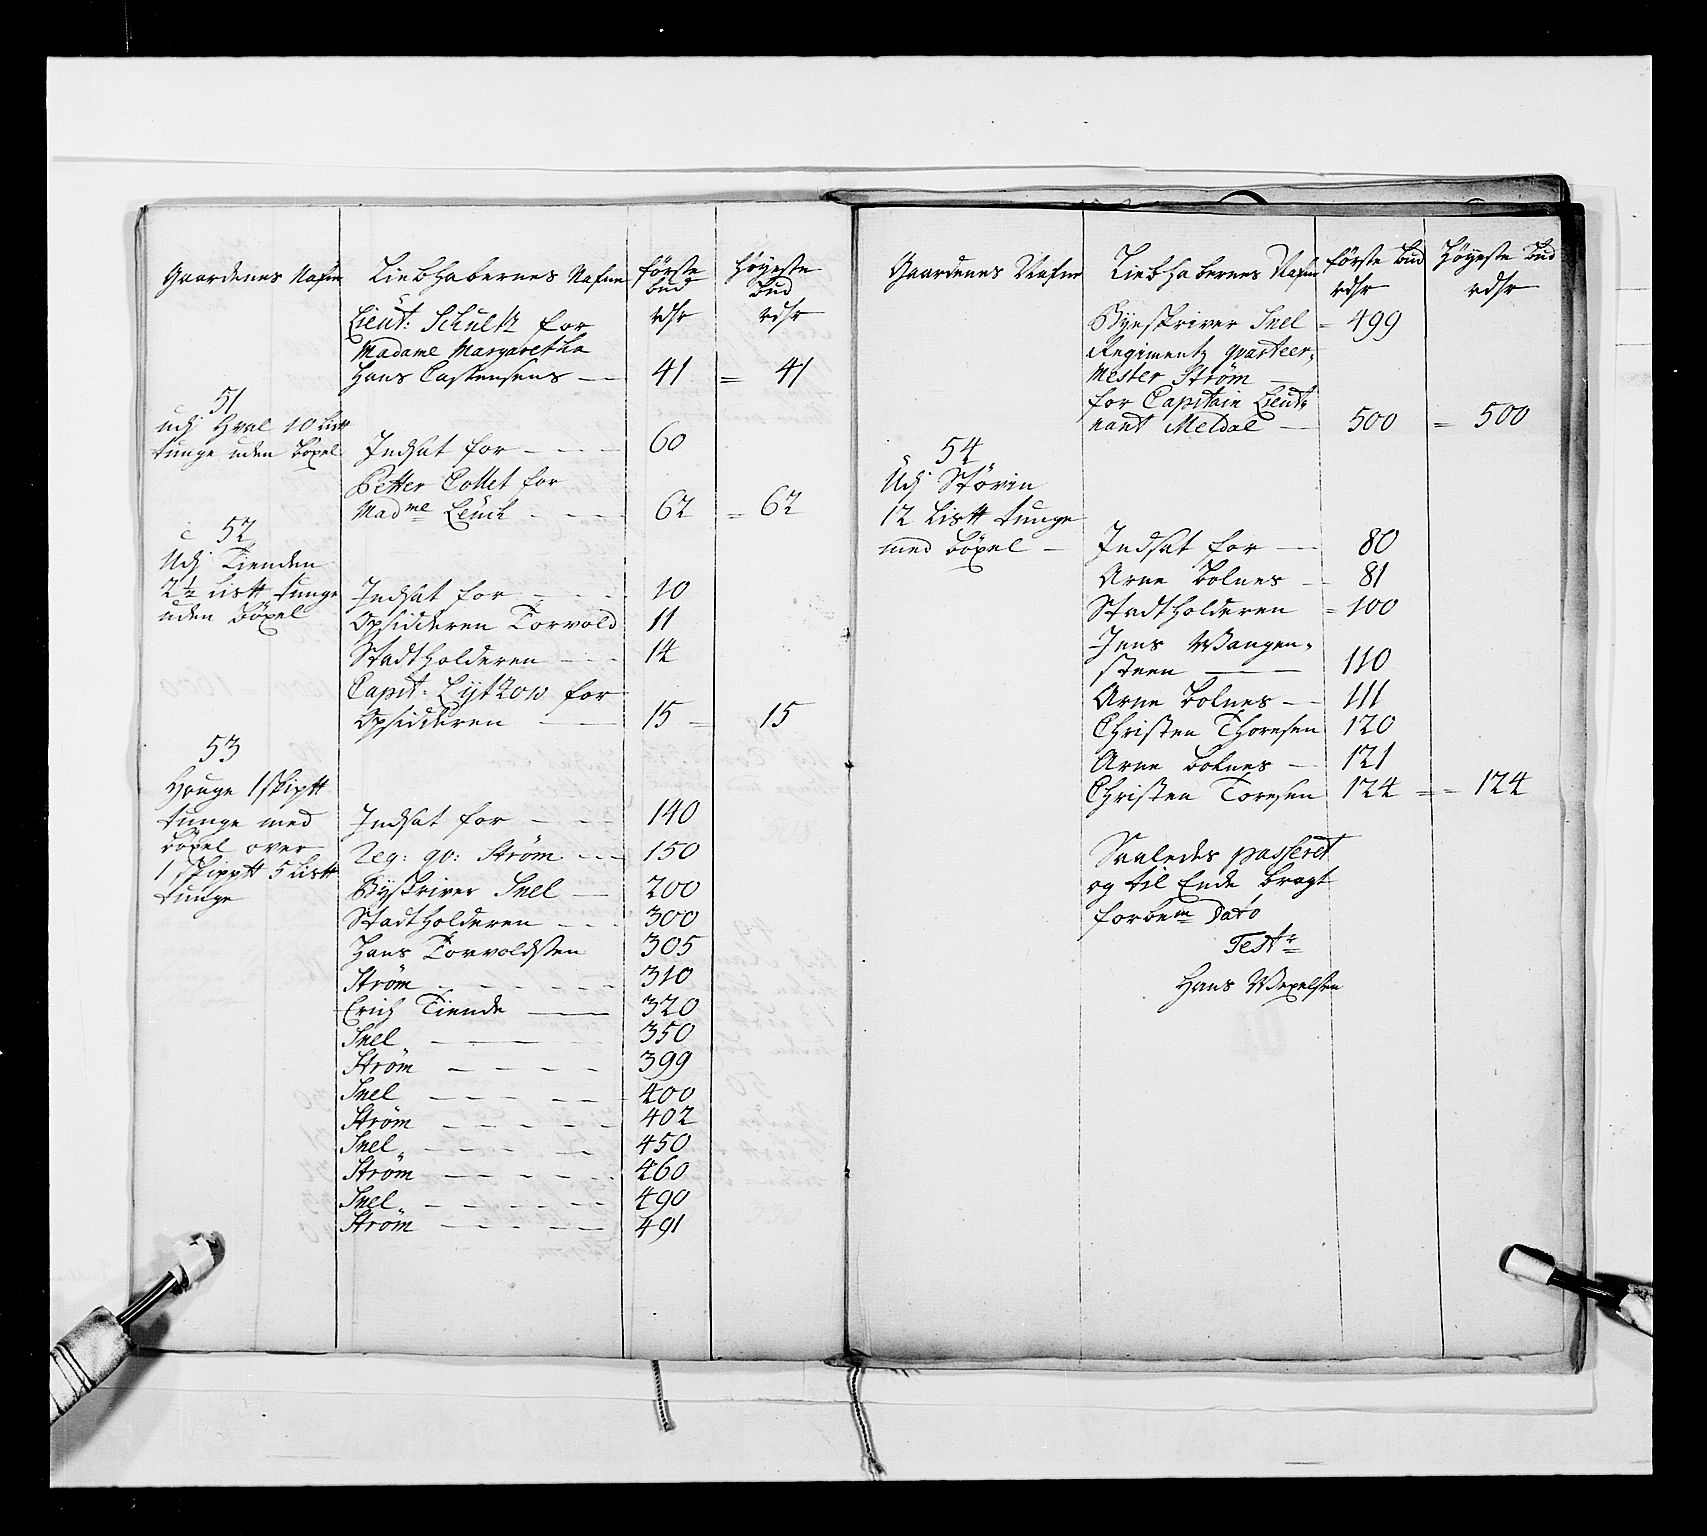 Gaardenes Nafne Liebhabernes Nafne første bud rdsr Høyeste bud rdsr
Lieut: Schultz for
Madame Margaretha
Hans Castensens — 41 = 41
51
udj Hval 10 List
tunge uden böxel Indsat for — 60
Petter Collet for
Madme Leuch — 62 = 62
52
Udj Tienden
2½ List tunge Indsat for — 10
uden Böxel Opsidderen Torvold 11
Stadtholderen — 14
Capit: Lytzow for
Opsidderen — 15 = 15
53
Houge 1 skiptt
tunge med Indsat for — 140
böxel over Reg: qv: Strøm — 150
1 Skipptt 5 List
tunge Byskriver Snel — 200
Stadtholderen — 300
Hans Torvoldsen 305
Strøm — 310
Erich Tiende — 320
Snel — 350
Strøm — 399
Snel — 400
Strøm — 402
Snel — 450
Strøm — 460
Snel — 490
Strøm — 491
Gaardenes Nafne Liebhabernes Nafne første bud rdsr Høyeste bud rdsr
Byeskriver Snel = 499
Regimentz qvarteer-
Mester Strøm
for Capitain Lieut-
nant Meldal — 500 = 500
54
Udj Störin
12 List tunge
med böxel — Indsat for — 80
Arne Bolnes — 81
Stadtholderen = 100
Jens Wangen-
steen — 110
Arne Bolnes — 111
Christen Thoresen 120
Arne Bolnes — 121
Christen Toresen 124 = 124
Saaledes passeret
og til Ende bragt
forbem Dato
Test
Hans Wexelsen